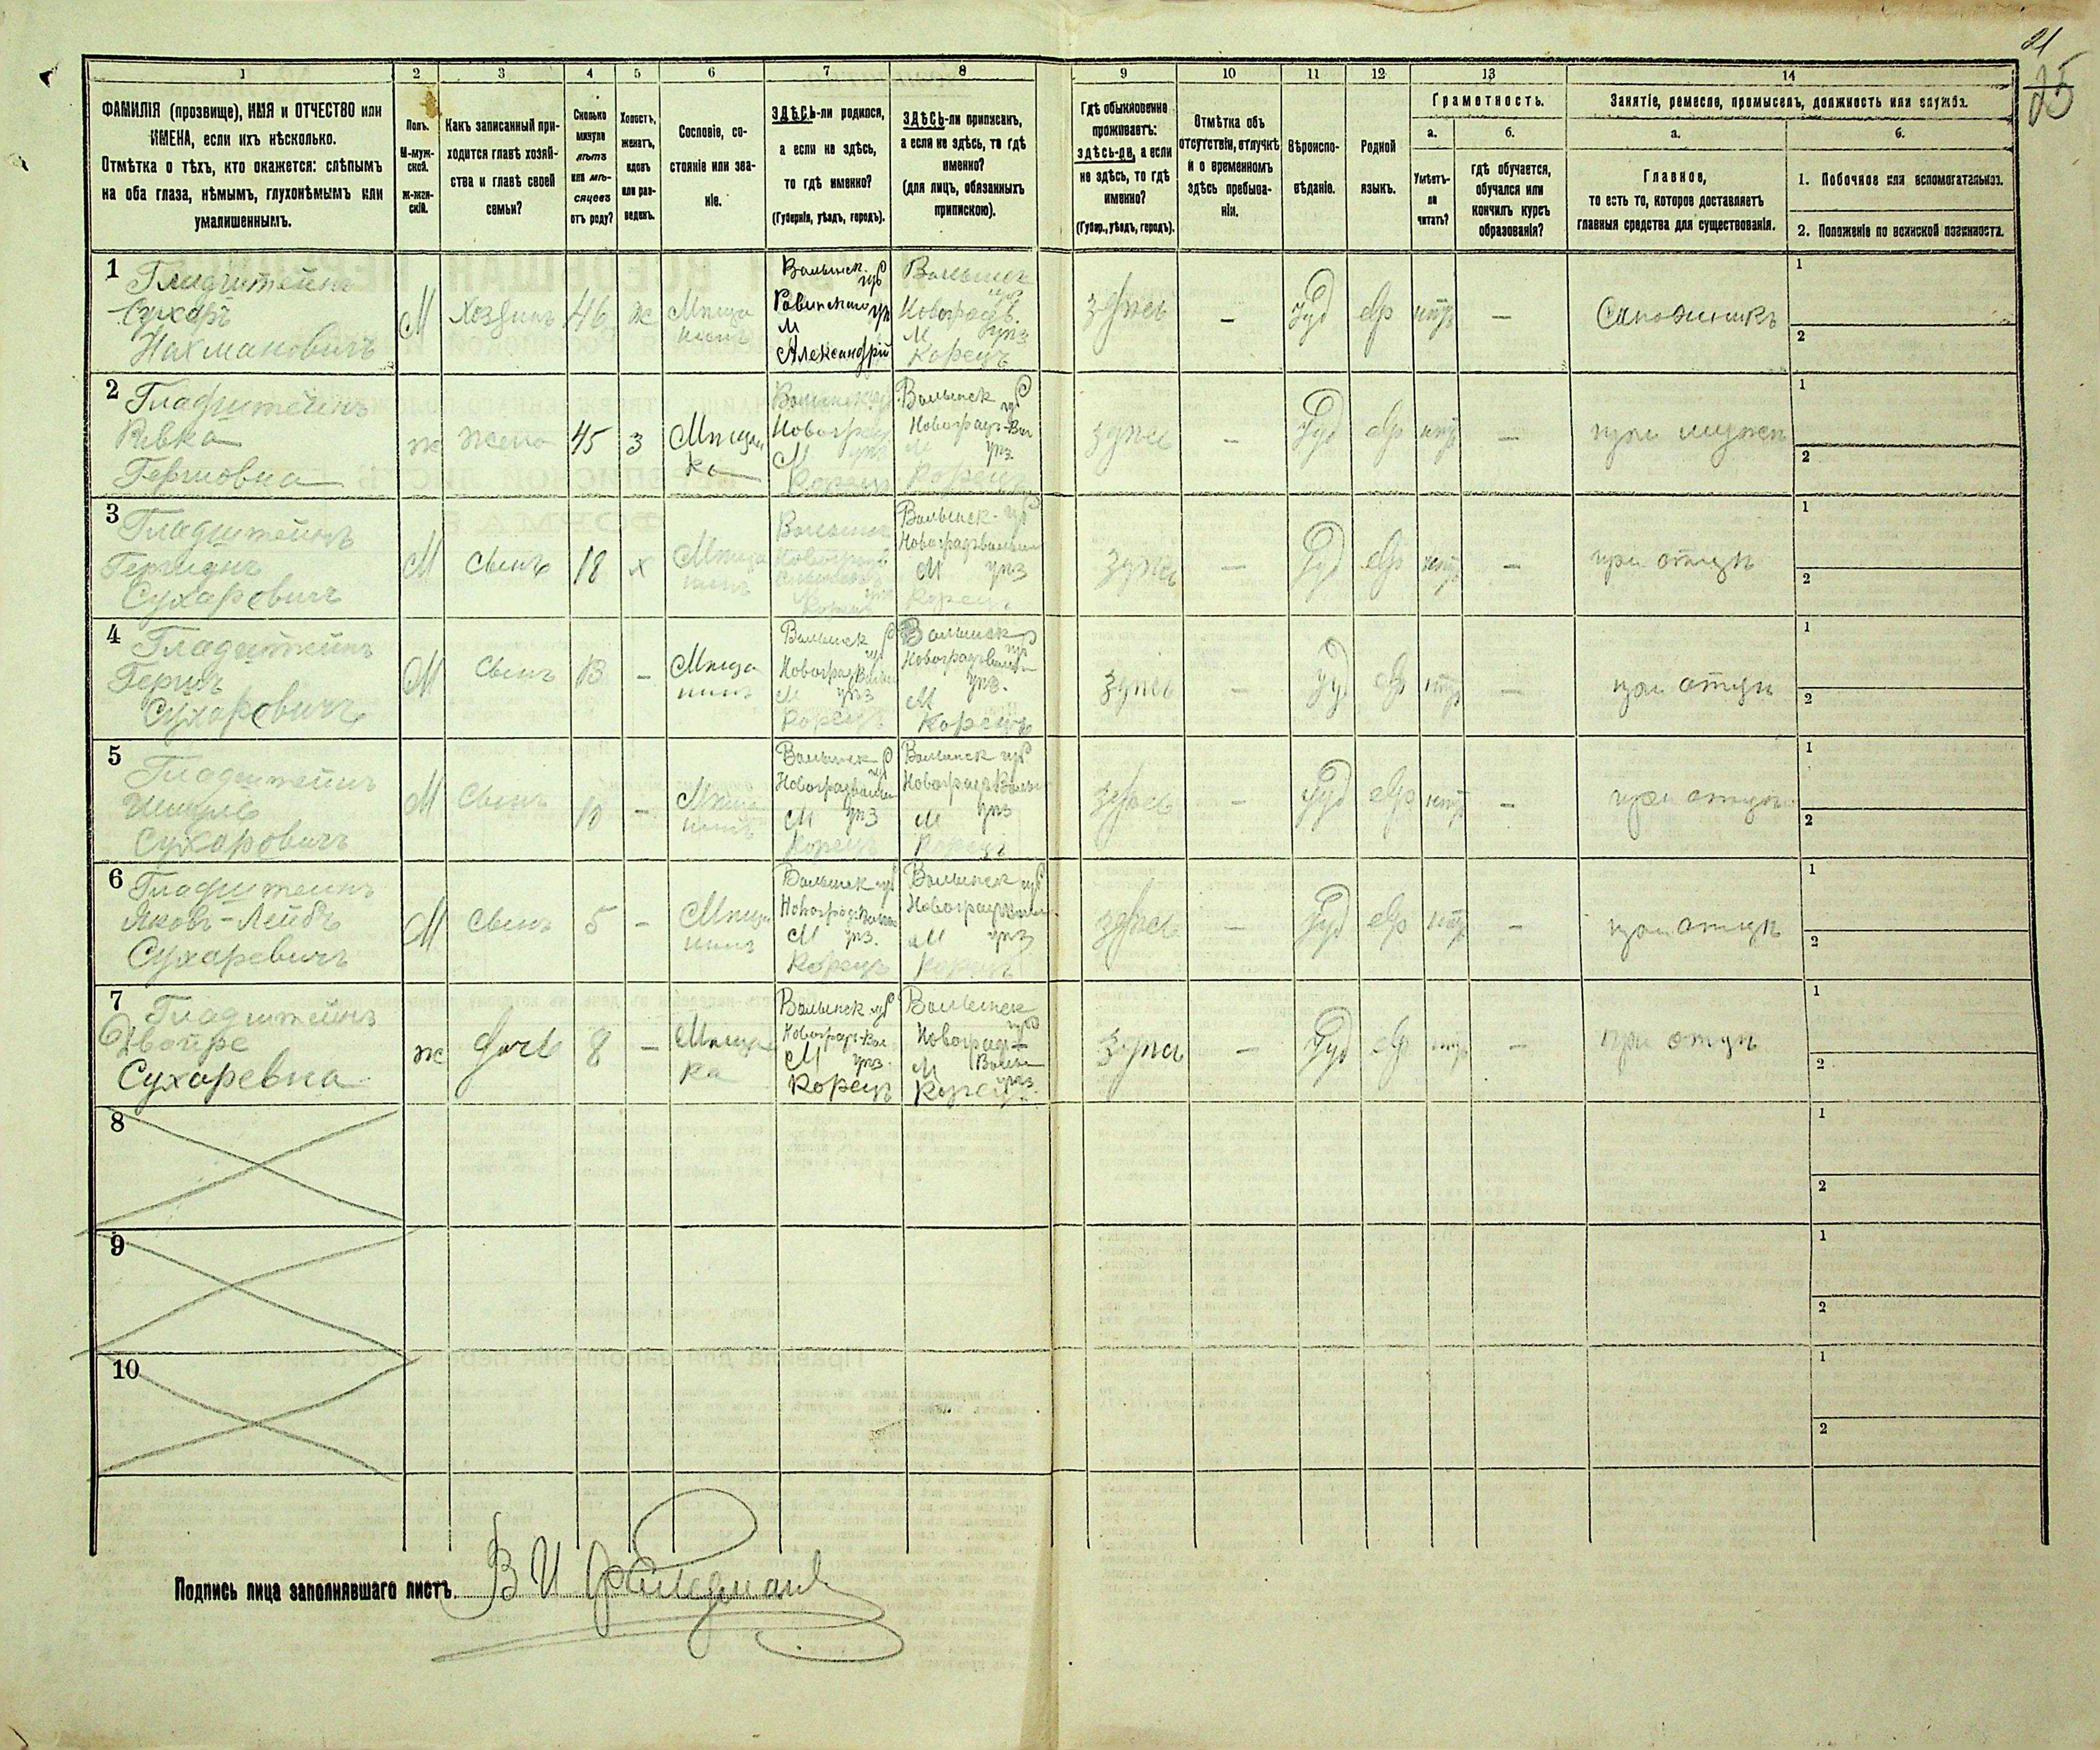 21
25
1 2 3 4 5 6 7 8 9 10 11 12 13 14
ФАМИЛІЯ (прозвище), ИМЯ и ОТЧЕСТВО или
ИМЕНА, если ихъ нѣсколько.
Отмѣтка о тѣхъ, кто окажется: слѣпымъ
на оба глаза, нѣмымъ, глухонѣмымъ или
умалишеннымъ.
Полъ.
М-муж-
ской.
Ж-жен-
скій.
Какъ записанный при-
ходится главѣ хозяй-
ства и главѣ своей
семьи?
Сколько
минуло
лѣтъ
или мѣ-
сяцевъ
отъ роду?
Холостъ,
женатъ,
вдовъ
или раз-
веденъ.
Сословіе, со-
стояніе или зва-
ніе.
ЗДѢСЬ-ли родился,
а если не здѣсь,
то гдѣ именно?
(Губернія, уѣздъ, городъ).
ЗДѢСЬ-ли приписанъ,
а если не здѣсь, то гдѣ
именно?
(для лицъ, обязанныхъ
припискою).
Гдѣ обыкновенно
проживаетъ:
здѣсь-ли, а если
не здѣсь, то гдѣ
именно?
(Губер., уѣздъ, городъ).
Отмѣтка объ
отсутствіи, отлучкѣ
и о временномъ
здѣсь пребыва-
ніи.
Вѣроиспо-
вѣданіе.
Родной
языкъ.
Грамотность.
а.
Умѣетъ-
ли
читать?
б.
гдѣ обучается,
обучался или
кончилъ курсъ
образованія?
Занятіе, ремесло, промыселъ, должность или служба.
а.
Главное,
то есть то, которое доставляетъ
главныя средства для существованія.
б.
1. Побочное или вспомогательное.
2. Положеніе по воинской повинности.
1
Гладштейнъ
Сухаръ
Нахмановичъ
М
Хозяинъ
46
ж
Мѣща
нинъ
Волынск.
губ
Ровенскаго уѣ
М
Александрій
Волынск
губ
Новоградъ.
М уѣз
Корецъ
здѣсь
–
Іуд
евр
нѣтъ
–
Сапожникъ
1
2
2
Гладштейнъ
Ривка
Гершовна
ж
жена
45
з
Мѣщан
ка
Волынск губ
Новоград
М уѣз
Корецъ
Волынск губ
Новоградъ-Вол
М уѣз
Корецъ
здѣсь
–
Іуд
евр
нѣтъ
–
при мужѣ
1
2
3
Гладштейнъ
Сухаровичъ
М
Сынъ
18
х
Мѣща
нинъ
Волынск
Корецъ
Волынск. губ
Новоградволын
М уѣз
Корецъ
здѣсь
–
Іуд
евр
нѣтъ
–
при отцѣ
1
2
4
Гладштейнъ
Гершъ
Сухаровичъ
М
Сынъ
13
–
Мѣща
нинъ
Волынск
губ
Новоградволын
М уѣз
Корецъ
Волынск
губ
Новоградволын
уѣз.
М
Корецъ
здѣсь
–
Іуд
евр
нѣтъ
–
при отцѣ
1
2
5
Гладштейнъ
Сухаровичъ
М
Сынъ
10
–
Мѣща
нинъ
Волынск
губ
Новоградволын
М уѣз
Корецъ
Волынск губ
НовоградъВолын
М уѣз
Корецъ
здѣсь
–
Іуд
евр
нѣтъ
–
при отцѣ
1
2
6
Гладштейнъ
Яковъ-Лейбъ
Сухаревичъ
М
Сынъ
5
–
Мѣща
нинъ
Волынск губ
Новоградволын
М уѣз.
Корецъ
Волынск губ
НовоградВолын.
М уѣз
Корецъ
здѣсь
–
Іуд
евр
нѣтъ
–
при отцѣ
1
2
7
Гладштейнъ
Двойре
Сухаревна
ж
дочь
8
–
Мѣщан
ка
Волынск губ
Новоград-Вол
М уѣз.
Корецъ
Волынск
губ
Новоград-
М Волын
уѣз.
Корецъ
здѣсь
–
Іуд
евр
нѣтъ
–
при отцѣ
1
2
8
1
2
9
1
2
10
1
2
Подпись лица заполнявшаго листъ.